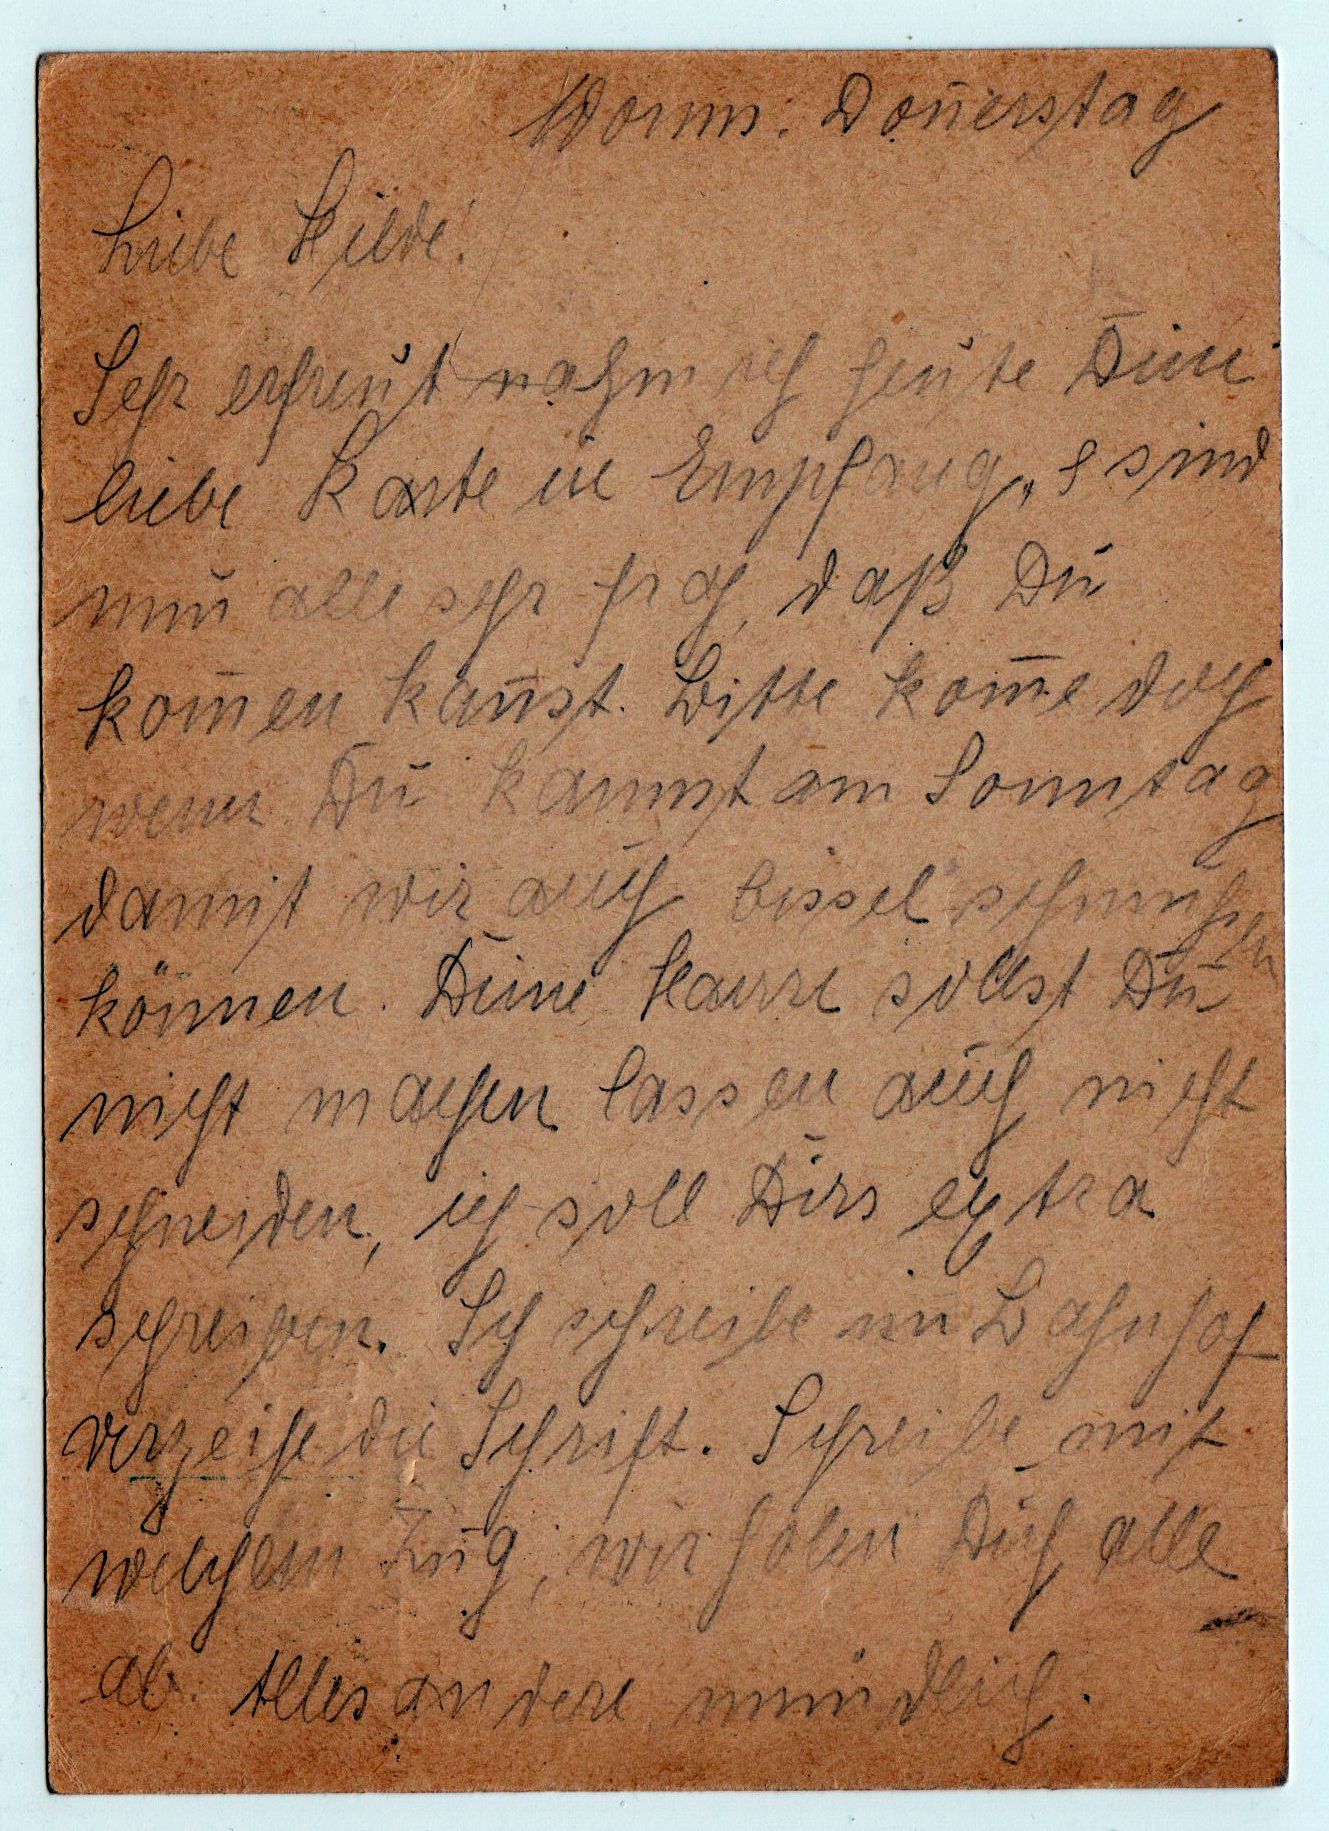 Worms. Doñerstag
Liebe Hilde!
Sehr erfreut nahm ich heute Deine
liebe Karte in Empfang, s sind
nun alle sehr froh, daß Du
kom̅en kan̅st. Bitte kom̅e doch
wenn Du kannst am Sonntag
damit wir auch bissel schmuseln
können. Deine Haare sollst Du
nicht machen lassen auch nicht
schneiden, ich soll Dirs extra
schreiben. Ich schreibe im Bahnhof
verzeihe die Schrift. Schreibe mit
welchem Zug, wir holen Dich alle
ab. Alles andere mündlich.